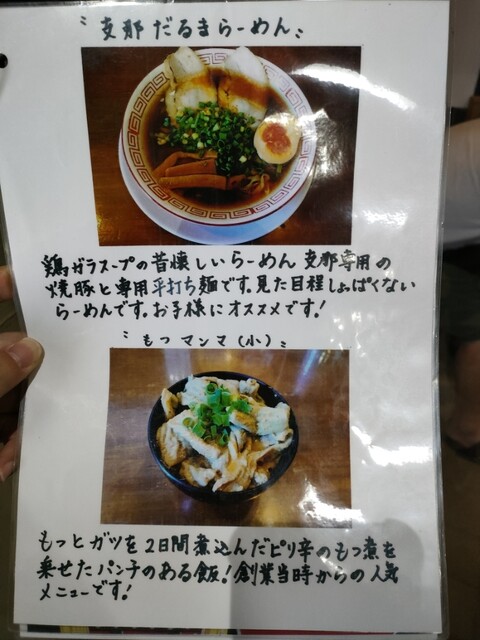 〝支那だるまらーめん〟
鶏ガラスープの昔懐しいらーめん 支那専用の
焼豚と専用平打ち麺です。見た目程しょぱくない
らーめんです。お子様にオススメです!
〝もつマンマ(小)〟
もつとガツを2日間煮込んだピリ辛のもつ煮を
乗せたパンチのある飯!創業当時からの人気
メニューです!